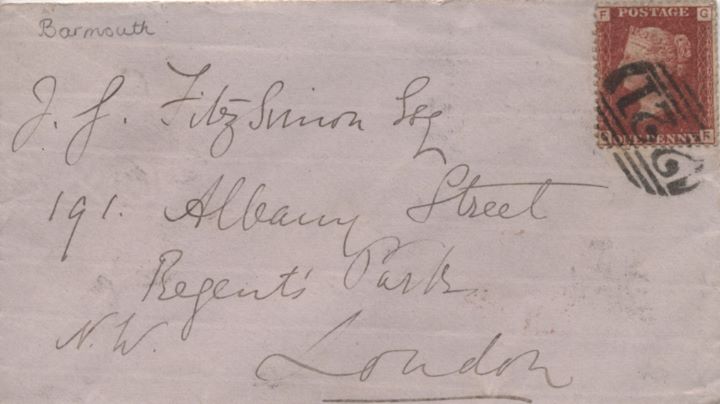 Barmouth
F POSTAGE G
ONE PENNY F
J. J. FitzSimon Esq
191. Albany Street
Regent's Park
N.W. London